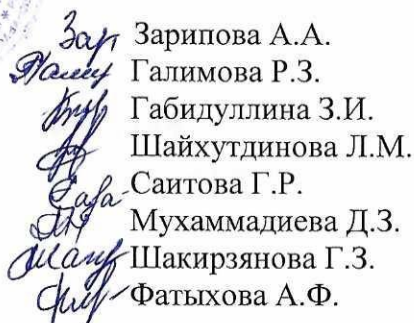 Зарипова А.А.
Галимова Р.З.
Габидуллина З.И.
Шайхутдинова Л.М.
Саитова Г.Р.
Мухаммадиева Д.З.
Шакирзянова Г.З.
Фатыхова А.Ф.